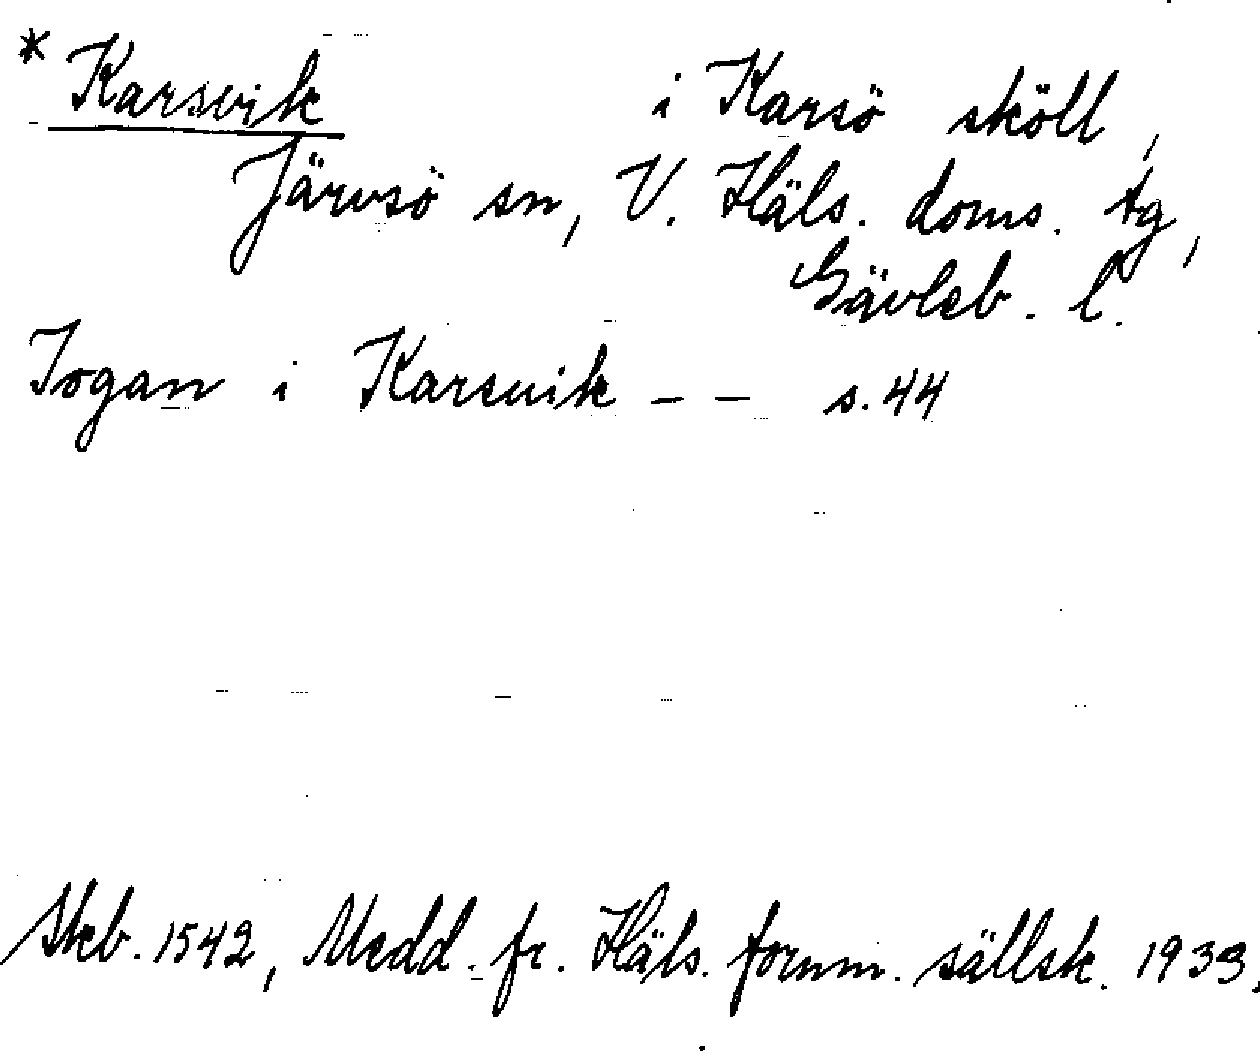 * Karsvik i Karsö sköll,
Järvsö sn, V. Häls. doms. tg,
Gävleb. l.
Jogan i Karsuik – – s. 44
Skb. 1542, Medd. fr. Häls. fornm. sällsk. 1933.